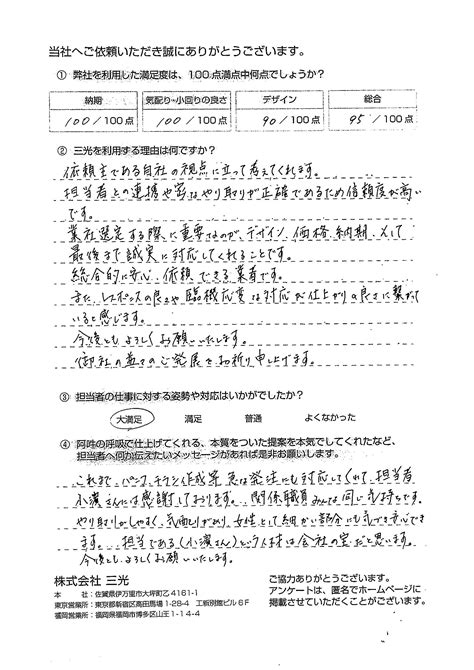 当社へご依頼いただき誠にありがとうございます。
① 弊社を利用した満足度は、100点満点中何点でしょうか?
納期 気配り・小回りの良さ デザイン 総合
100/100点 100/100点 90/100点 95/100点
② 三光を利用する理由は何ですか?
依頼主である自社の視点に立って考えてくれます。
担当者との連携や密なやり取りが正確であるため信頼度が高い
です。
業社選定する際に重要なのが、デザイン、価格、納期、そして
最後まで誠実に対応してくれることです。
総合的に安心、依頼できる業者です。
また、レスポンスの良さや臨機応変な対応が仕上がりの良さに繋がって
いると感じます。
今後ともよろしくお願いいたします。
御社の益々のご発展をお祈り申し上げます。
③ 担当者の仕事に対する姿勢や対応はいかがでしたか?
大満足 満足 普通 よくなかった
④ 阿吽の呼吸で仕上げてくれる、本質をついた提案を本気でしてくれたなど、
担当者へ何か伝えたいメッセージがあれば是非お願いします。
これまで、パンフ、チラシ作成等 急な発注にも対応してくれて、担当者
小濱さんには感謝しております。関係職員みんな同じ気持ちです。
やり取りがしやすく、気配りがあり、女性として細かい部分にも気づき安心でき
ます。担当である(小濱さん)という人材は会社の宝だと思います。
今後ともよろしくお願いいたします。
株式会社 三光
本 社:佐賀県伊万里市大坪町乙4161-1
東京営業所:東京都新宿区高田馬場1-28-4 工販別館ビル6F
福岡営業所:福岡県福岡市博多区山王1-14-4
ご協力ありがとうございます。
アンケートは、匿名でホームページに
掲載させていただくことがございます。